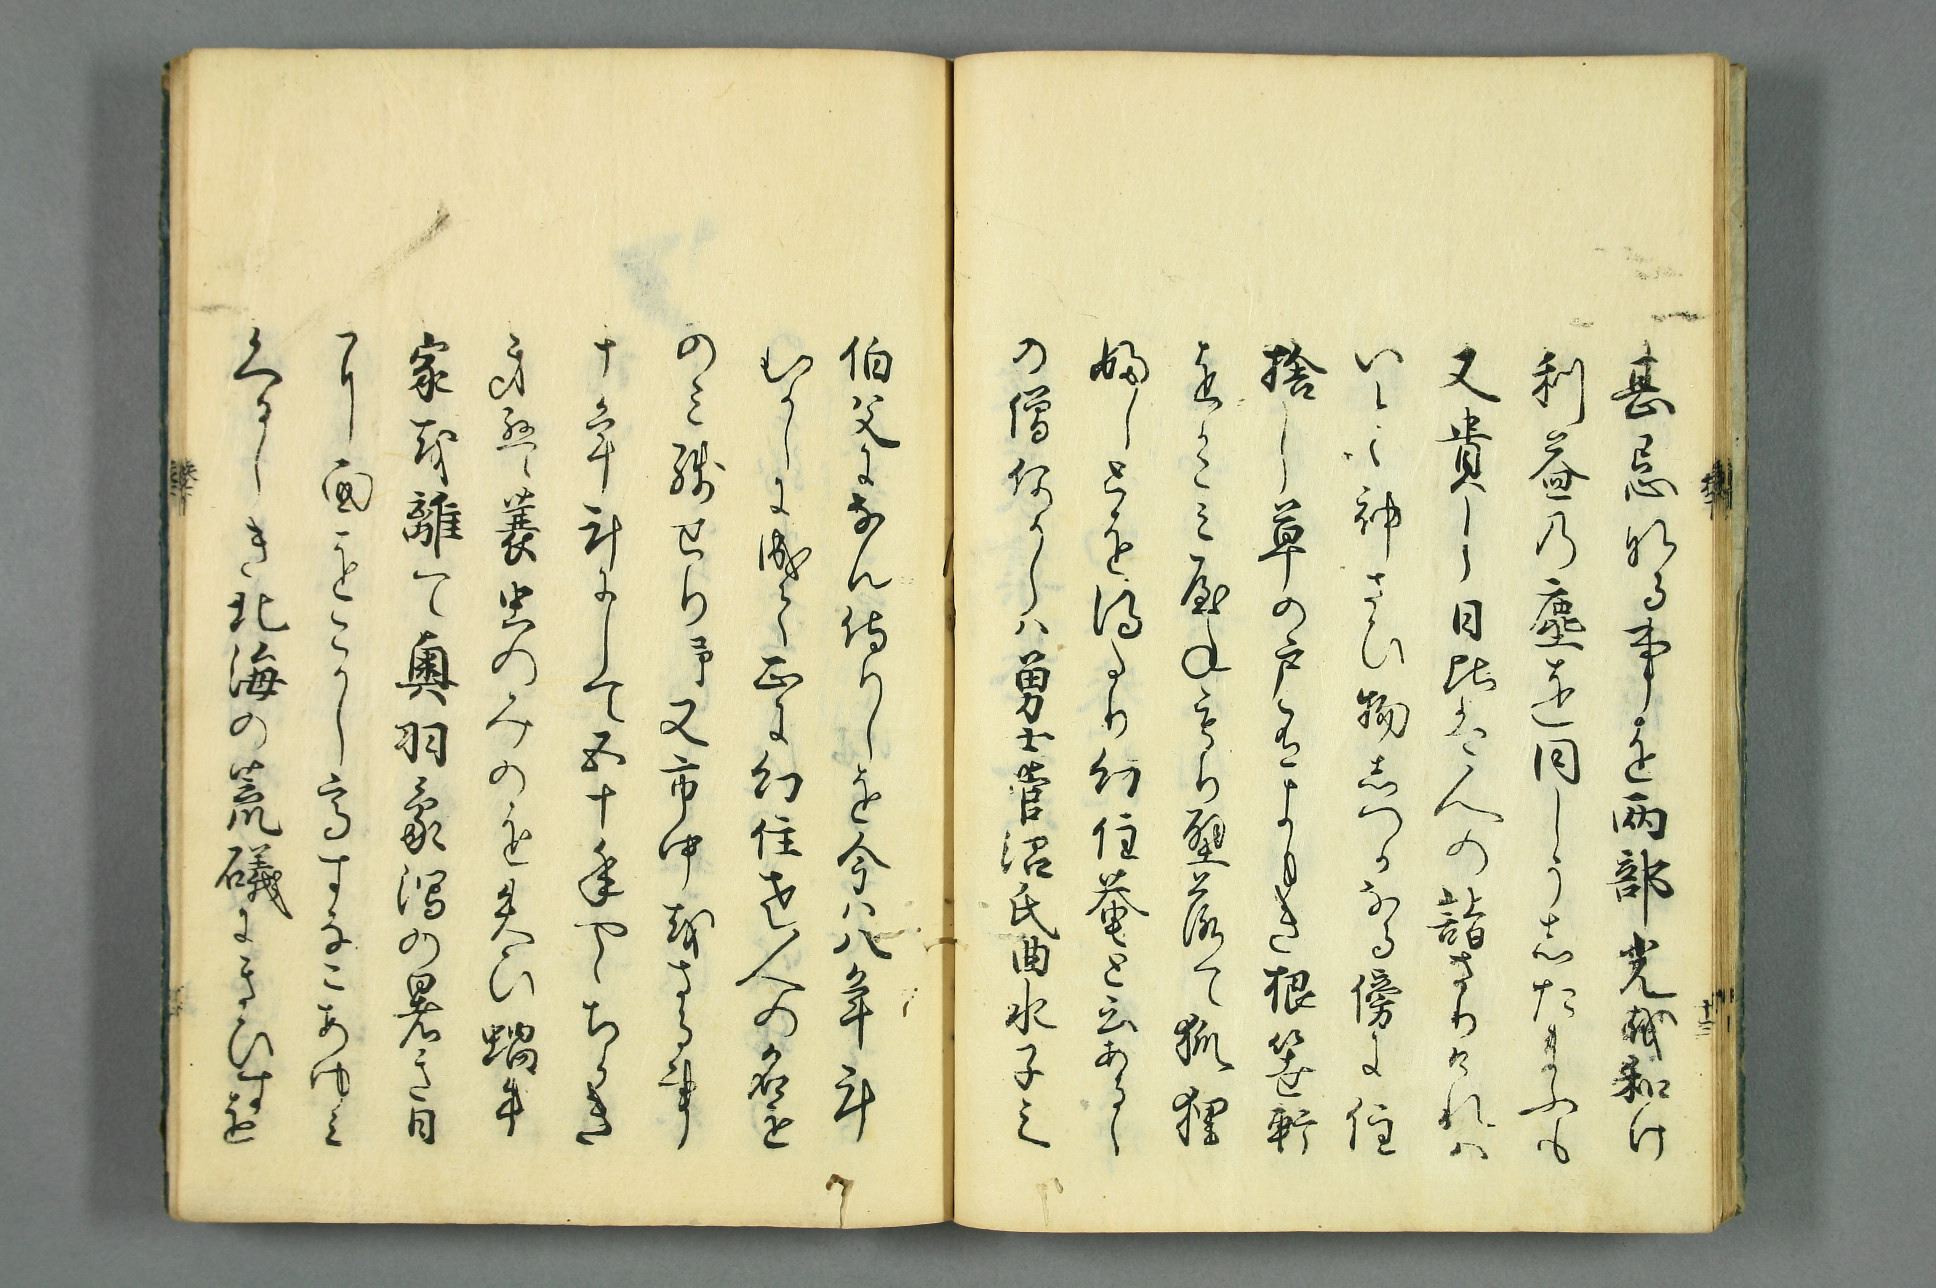 甚忌なる事を両部光を和け
利益の塵を同しうしたまふも
又貴し日比は人の詣さりけれは
いとゝ神さひ物しつかなる傍に住
捨し草の戸有よもき根笹軒
をかこミ屋ねもり壁落て狐狸
ふしとを得たり幻住菴と云あるし
の僧何かしハ勇士菅沼氏曲水子之
伯父になん侍りしを今ハ八年計
むかしに成て正に幻住老人の名を
のミ残せり予又市中をさる事
十年計にして五十年やゝちかき
身ハ蓑虫のみのを失ひ蝸牛
家を離て奥羽象潟の暑き日
に面をこかし高すなこあゆミ
くるしき北海の荒礒にきひすを
十三